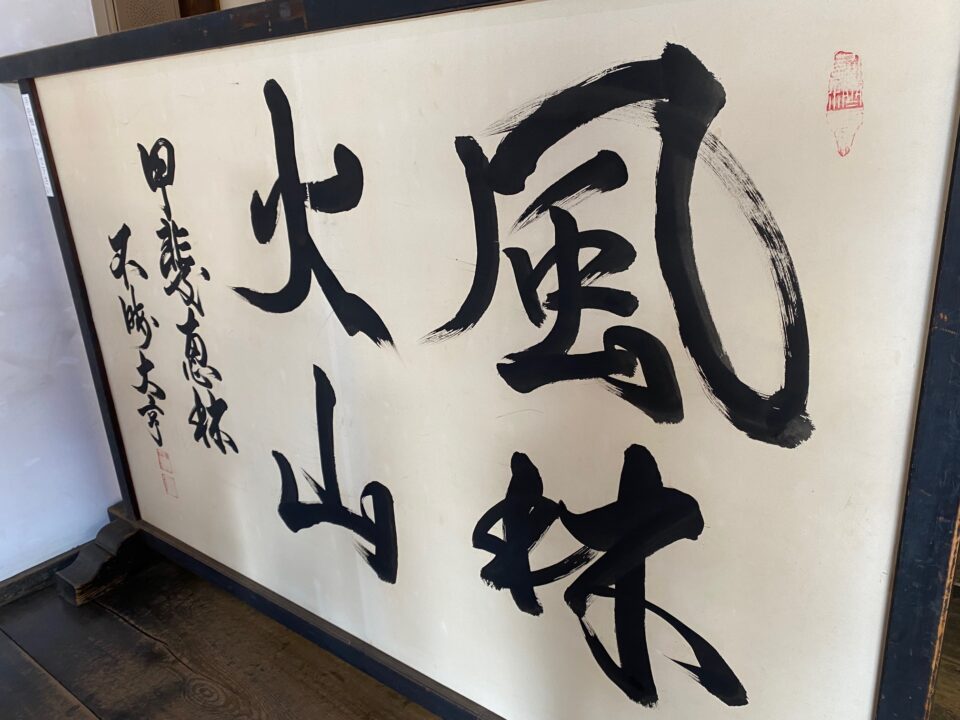 風林
火山
甲斐恵林
大亨